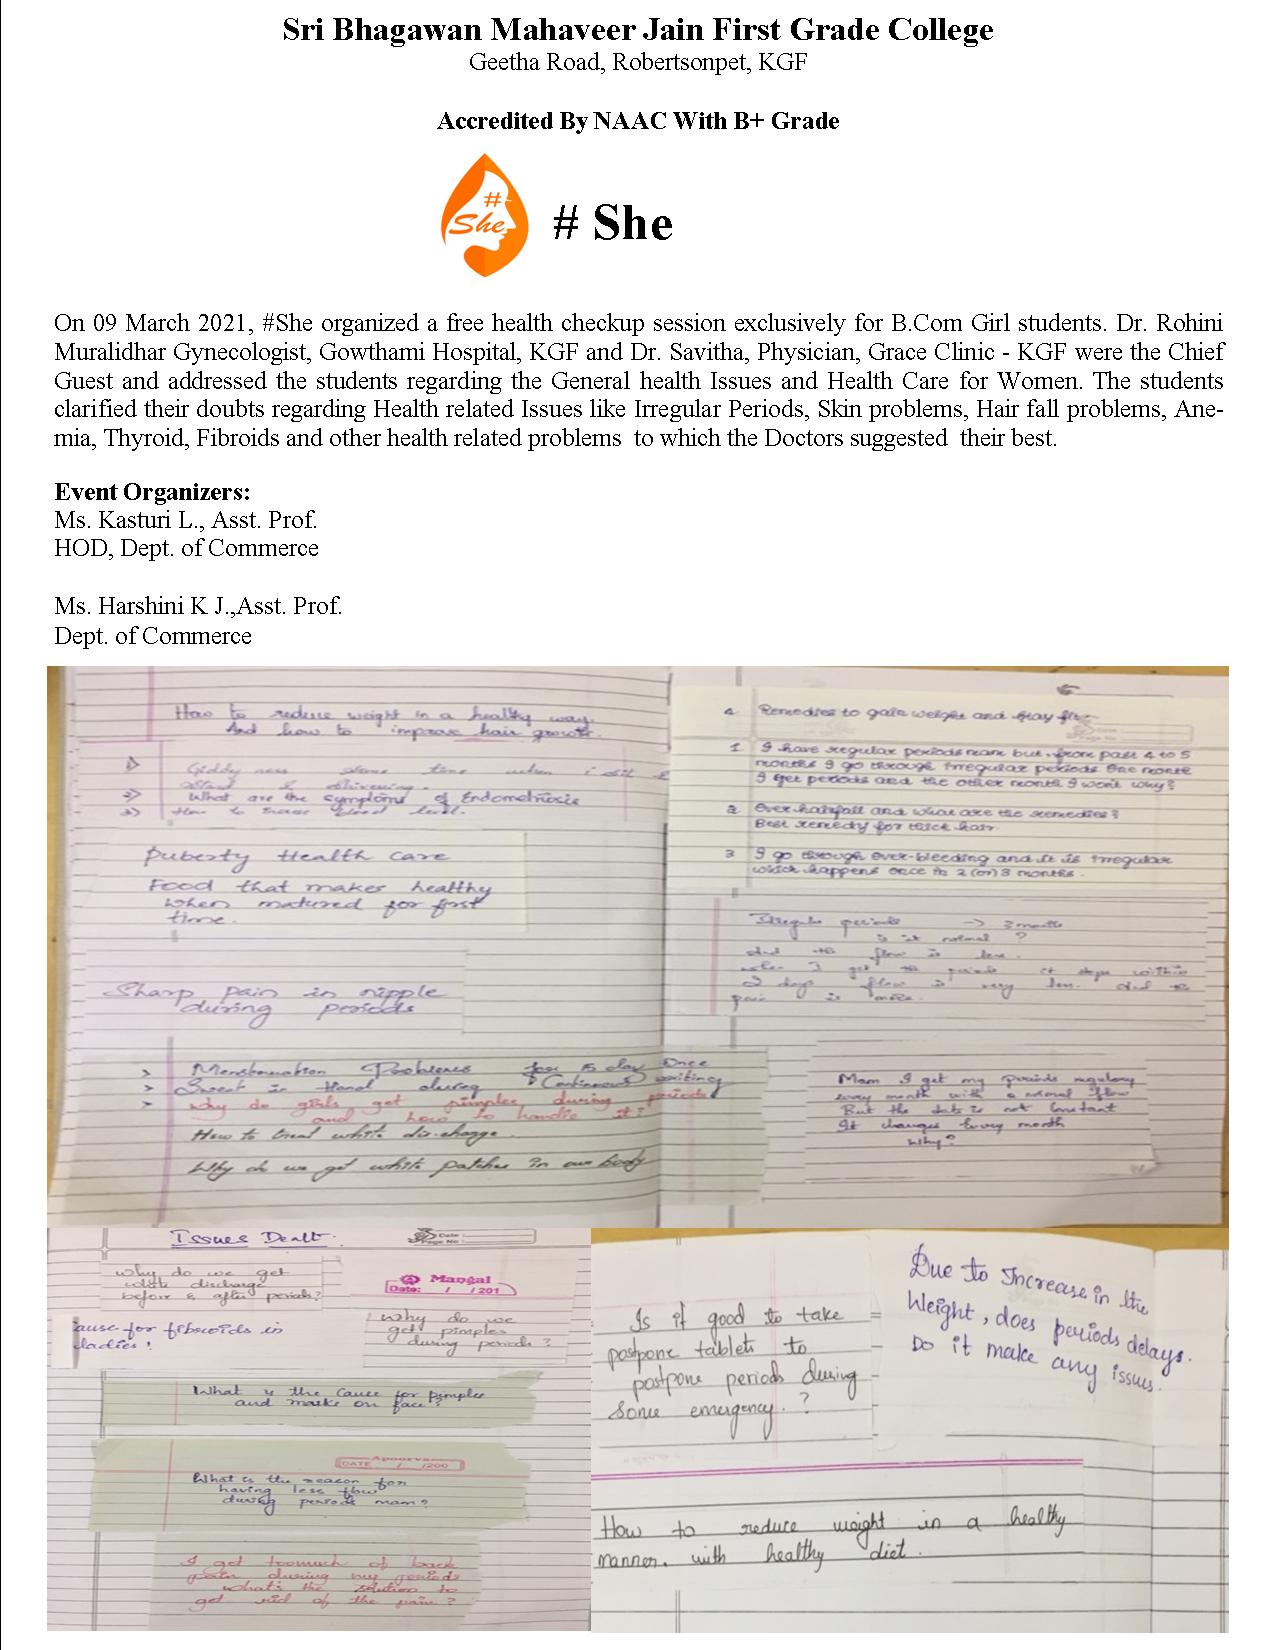 Sri Bhagawan Mahaveer Jain First Grade College
Geetha Road, Robertsonpet, KGF
Accredited By NAAC With B+ Grade
#
She
# She
On 09 March 2021, #She organized a free health checkup session exclusively for B.Com Girl students. Dr. Rohini
Muralidhar Gynecologist, Gowthami Hospital, KGF and Dr. Savitha, Physician, Grace Clinic - KGF were the Chief
Guest and addressed the students regarding the General health Issues and Health Care for Women. The students
clarified their doubts regarding Health related Issues like Irregular Periods, Skin problems, Hair fall problems, Ane-
mia, Thyroid, Fibroids and other health related problems  to which the Doctors suggested  their best.
Event Organizers:
Ms. Kasturi L., Asst. Prof.
HOD, Dept. of Commerce
Ms. Harshini K J.,Asst. Prof.
Dept. of Commerce
How to reduce weight in a healthy way.
And how to improve hair growth.
1) Giddyness some time when i sit &
stand & shivering.
2) What are the symptoms of Endometriosis
3) How to increase blood level.
Puberty Health care
Food that makes healthy
when matured for first
time.
Sharp pain in nipple
during periods
> Menstruation Problems for 15 day once
> Sweat in Hand during Continuous writing
> Why do girls get pimples during periods
and how to handle it?
How to treat white discharge.
Why do we get white patches in our body
4 Remedies to gain weight and stay fit.
1 I have regular periods mam but from past 4 to 5
months I go through irregular periods one month
I get periods and the other month I won't why?
2 Over hairfall and what are the remedies?
Best remedy for thick hair.
3 I go through over-bleeding and it is irregular
which happens once in 2 (or) 3 months.
Irregular periods -> 2 months
is it normal ?
and the flow is less.
when I get the periods it stops within
2 days flow is very less. and the
pain is more.
Mam I get my periods regulary
every month with a normal flow
But the date is not Constant
It changes Every month
Why?
Issues Dealt.
Date:
Page No:
Why do we get
white discharge
before & after periods?
Mangal
Date: / / 201
ause for fibroids in
ladies!
Why do we
get pimples
during periods ?
What is the cause for pimples
and marks on face?
Apoorva
DATE / /200
What is the reason for
having less flow
during periods mam?
I get toomuch of back
pain during my periods
what's the solution to
get rid of the pain?
Is it good to take
postpone tablets to
postpone periods during
some emergency. ?
Due to Increase in the
Weight, does periods delays.
Do it make any issues.
How to reduce weight in a healthy
manner. with healthy diet.